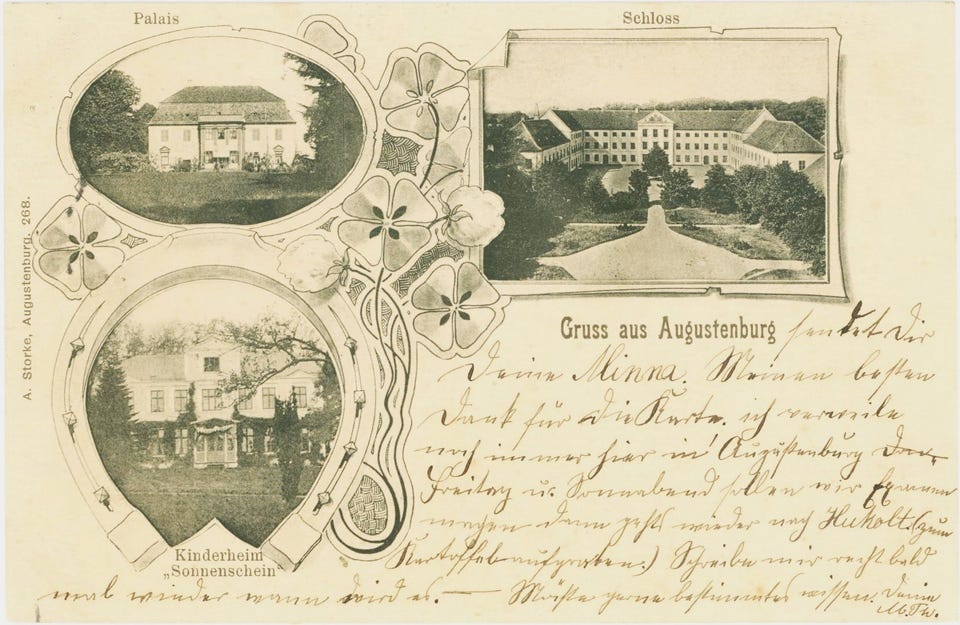 Palais
Schloss
A. Storke, Augustenburg. 268.
Kinderheim
„Sonnenschein“
Gruss aus Augustenburg sendet Dir
Deine Minna. Meinen besten
Dank für die Karte. ich verweile
noch immer hier in Augustenburg
Freitag u. Sonnabend sollen wir Examen
machen dann gehts wieder nach (zum
Kartoffel aufgraben.) Schreibe mir recht bald
mal wieder wann wird es. — Möchte gerne bestimmtes wissen. Deine